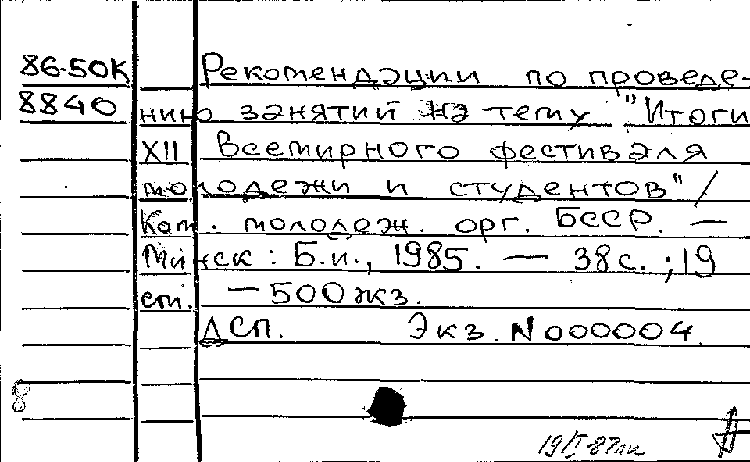 86-50К Рекомендации по проведе-
8840 нию занятий на тему "Итоги
XII Всемирного фестиваля
молодежи и студентов" /
Ком. молодеж. орг. БССР. —
Минск: Б.и., 1985. — 38 с.; 19
см. — 500 экз.
ДСП. Экз. N 000004.
8